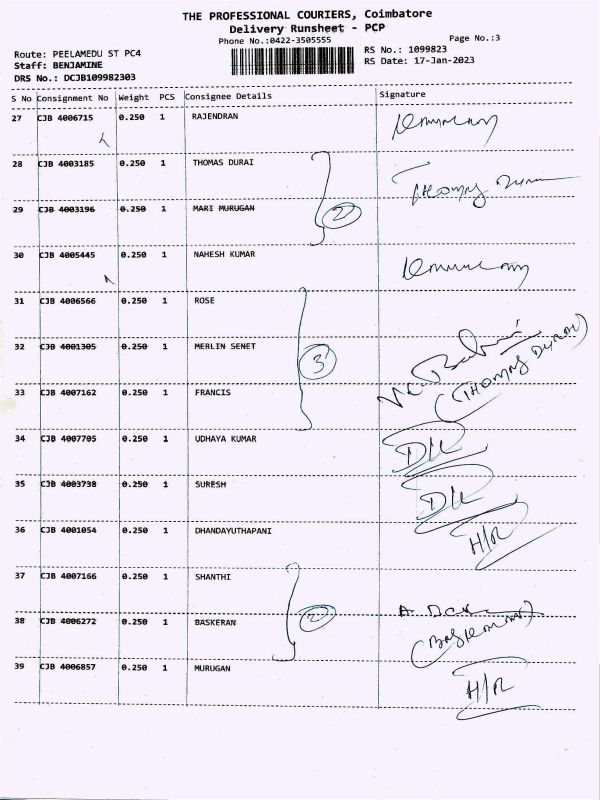 THE PROFESSIONAL COURIERS, Coimbatore
Delivery Runsheet - PCP
Phone No.:0422-3505555
Page No.:3
Route: PEELAMEDU ST PC4
RS No.: 1099823
Staff: BENJAMINE
RS Date: 17-Jan-2023
DRS No.: DCJB109982303
S No Consignment No Weight PCS Consignee Details Signature
27 CJB 4006715 0.250 1 RAJENDRAN
28 CJB 4003185 0.250 1 THOMAS DURAI
29 CJB 4003196 0.250 1 MARI MURUGAN 2
30 CJB 4005445 0.250 1 NAHESH KUMAR
31 CJB 4006566 0.250 1 ROSE
32 CJB 4001305 0.250 1 MERLIN SENET 3
33 CJB 4007162 0.250 1 FRANCIS
34 CJB 4007705 0.250 1 UDHAYA KUMAR
35 CJB 4003738 0.250 1 SURESH
36 CJB 4001054 0.250 1 DHANDAYUTHAPANI H/R
37 CJB 4007166 0.250 1 SHANTHI
38 CJB 4006272 0.250 1 BASKERAN 2
39 CJB 4006857 0.250 1 MURUGAN H/R